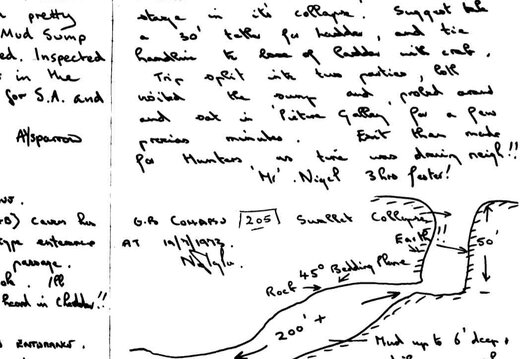 pretty
Mud Sump
ed. Inspected
s in the
for S.A. and
A/sparrow
stage in it's collapse. Suggest take
a 30' tether for ladder, and tie
handline to base of ladder with crab.
Trip split into two parties, both
visited the sump and, proled around
and sat in 'Picture Gallery' for a few
precious minutes. Exit then made
for Hunters as time was drawing neigh!!
'Mr'. Nigel 3 hrs faster!
) cavers has
type entrance
passage.
I'll
heard in Cheddar!!
ENTRANCE.
G.B Cohapsu 205 Swallet Collapse
AT 1973.
Earth!!
50'
45° Bedding Plane
Rock
200' +
Mud up to 6' deep &